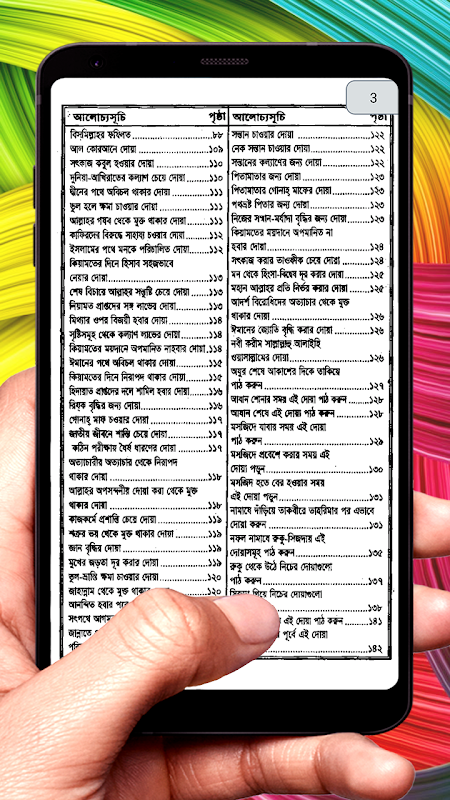 3
আলোচ্যসূচি পৃষ্ঠা
বিসমিল্লাহর ফযিলত ৮৮
আল কোরআনে দোয়া ১০৯
সৎকাজ কবুল হওয়ার দোয়া ১১০
দুনিয়া-আখিরাতের কল্যাণ চেয়ে দোয়া ১১০
দ্বীনের পথে অবিচল থাকার দোয়া ১১১
ভুল হলে ক্ষমা চাওয়ার দোয়া ১১১
আল্লাহর গযব থেকে মুক্ত থাকার দোয়া ১১১
কাফিরদের বিরুদ্ধে সাহায্য চাওয়ার দোয়া ১১২
ইসলামের পথে মনকে পরিচালিত দোয়া ১১২
কিয়ামতের দিনে হিসাব সহজভাবে
নেয়ার দোয়া ১১৩
শেষ বিচারে আল্লাহর সন্তুষ্টি চেয়ে দোয়া ১১৩
নিয়ামত প্রাপ্তদের সঙ্গ লাভের দোয়া ১১৩
মিথ্যার ওপর বিজয়ী হবার দোয়া ১১৪
সৃষ্টিসমূহ থেকে কল্যাণ লাভের দোয়া ১১৪
কিয়ামতের ময়দানে অপমানিত নাহবার দোয়া ১১৪
ঈমানের পথে অবিচল থাকার দোয়া ১১৫
কিয়ামতের দিনে নিরাপদ থাকার দোয়া ১১৫
হিদায়াত প্রাপ্তদের দলে শামিল হবার দোয়া ১১৬
রিয্‌ক বৃদ্ধির জন্য দোয়া ১১৬
গোনাহ্ মাফ চাওয়ার দোয়া ১১৭
জাতীয় জীবনে শান্তি চেয়ে দোয়া ১১৭
কঠিন পরীক্ষায় ধৈর্য ধারণের দোয়া ১১৭
অত্যাচারীর অত্যাচার থেকে নিরাপদ
থাকার দোয়া ১১৮
আল্লাহর অপসন্দনীয় দোয়া করা থেকে মুক্ত
থাকার দোয়া ১১৮
কাজকর্মে প্রশান্তি চেয়ে দোয়া ১১৯
শত্রুর ভয় থেকে মুক্ত থাকার দোয়া ১১৯
জ্ঞান বৃদ্ধির দোয়া ১১৯
মুখের জড়তা দূর করার দোয়া ১১৯
ভুল-ভ্রান্তি ক্ষমা চাওয়ার দোয়া ১২০
জাহান্নাম থেকে মুক্ত থাকার ১২০
আনন্দিত হবার
সৎপথে
জান্নাতে
আলোচ্যসূচি পৃষ্ঠা
সন্তান চাওয়ার দোয়া ১২২
নেক সন্তান চাওয়ার দোয়া ১২২
সন্তানের কল্যাণের জন্য দোয়া ১২২
পিতামাতার জন্য দোয়া ১২৩
পিতামাতার গোনাহ্ মাফের দোয়া ১২৩
পথভ্রষ্ট পিতার জন্য দোয়া ১২৩
নিজের সম্মান-মর্যাদা বৃদ্ধির জন্য দোয়া ১২৩
কিয়ামতের ময়দানে অপমানিত না
হবার দোয়া ১২৪
সৎকাজ করার তাওফীক চেয়ে দোয়া ১২৪
মন থেকে হিংসা-বিদ্বেষ দূর করার দোয়া ১২৫
মহান আল্লাহর প্রতি নির্ভর করার দোয়া ১২৫
আদর্শ বিরোধিদের অত্যাচার থেকে মুক্ত
থাকার দোয়া ১২৬
ঈমানের জ্যোতি বৃদ্ধি করার দোয়া ১২৬
নবী করীম সাল্লাল্লাহু আলাইহি
ওয়াসাল্লামের দোয়া ১২৬
অযুর শেষে আকাশের দিকে তাকিয়ে
পাঠ করুন ১২৭
আযান শোনার সময় এই দোয়া পাঠ করুন ১২৮
আযান শেষে এই দোয়া পাঠ করুন ১২৮
মসজিদে যাবার সময় এই দোয়া
পাঠ করুন ১২৯
মসজিদে প্রবেশে করার সময় এই
দোয়া পড়ুন ১৩০
মসজিদ হতে বের হওয়ার সময়
এই দোয়া পড়ুন ১৩১
নামাযে দাঁড়িয়ে তাকবীরে তাহরিমার পর এভাবে
দোয়া করুন ১৩১
নফল নামাযে রুকু-সিজদায় এই
দোয়াসমূহ পাঠ করুন ১৩২
রুকু থেকে উঠে নিচের দোয়াগুলো
পাঠ করুন ১৩৭
গিয়ে নিচের দোয়াগুলো
১৩৮
এই দোয়া পাঠ করুন ১৪১
পূর্বে এই দোয়া
১৪২